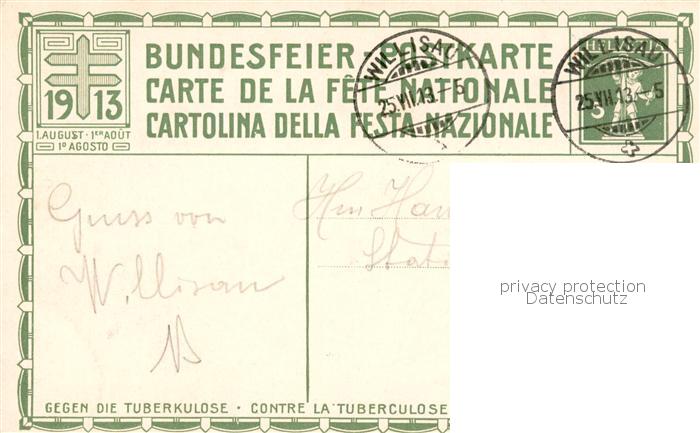 BUNDESFEIER-POSTKARTE
CARTE DE LA FÊTE NATIONALE
CARTOLINA DELLA FESTA NAZIONALE
1913
1.AUGUST · 1ER AOÛT
1º AGOSTO
WILLISAU
25.VII.13.-5
WILLISAU
25.VII.13.-5
5
Gruss von
Willisau
Hrn Han
Stati
privacy protection
Datenschutz
GEGEN DIE TUBERKULOSE · CONTRE LA TUBERCULOSE